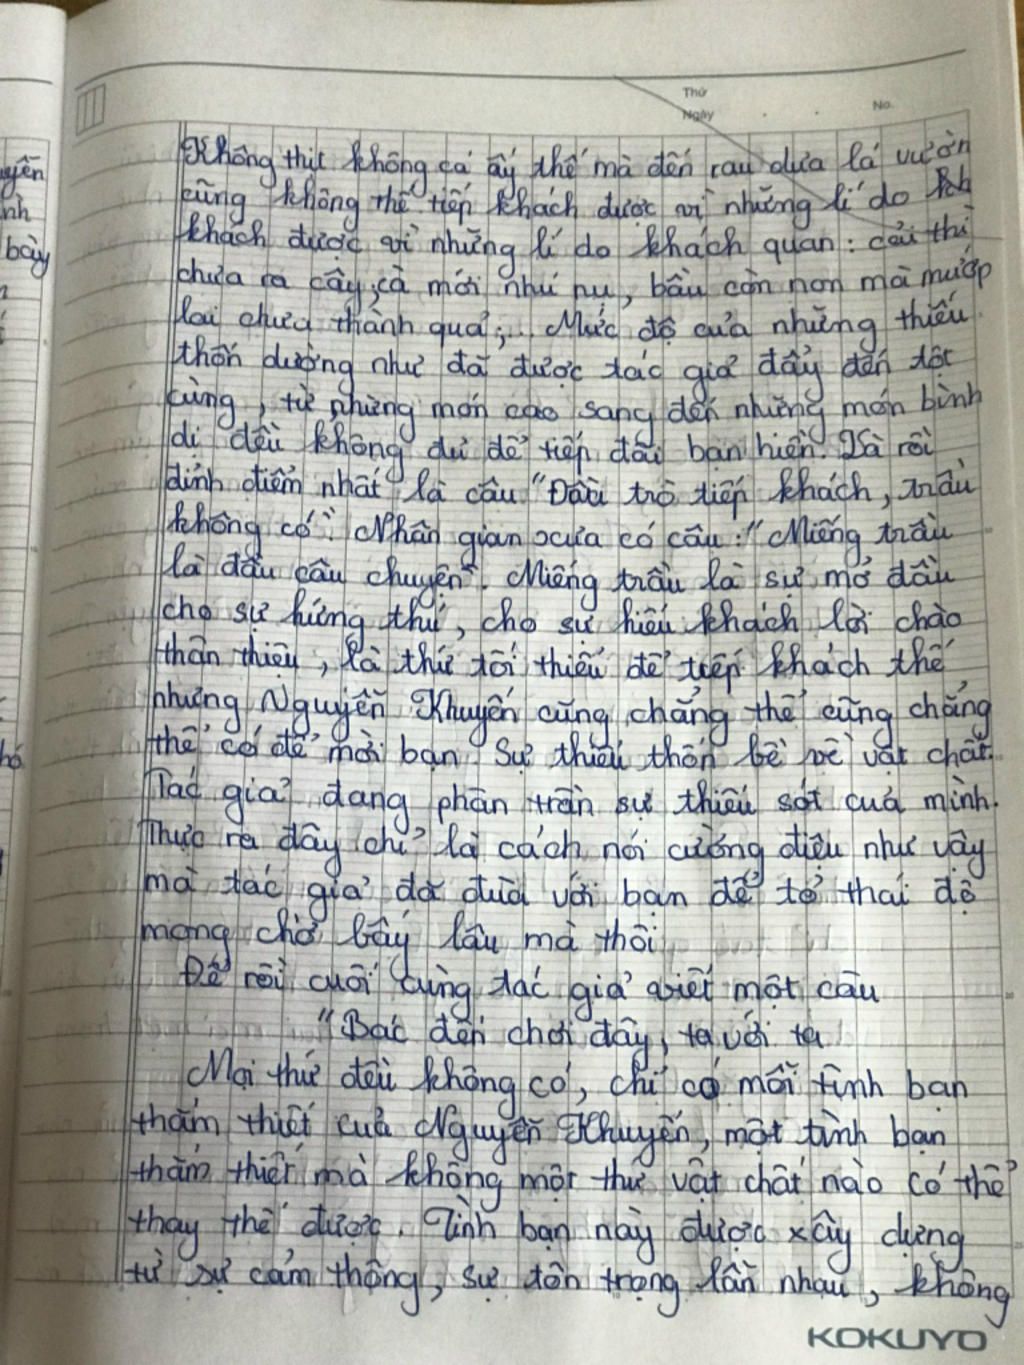 Thứ
Ngày
No.
Không thịt không cá ấy thế mà đến rau dưa lá vườn
cũng không thể tiếp khách được vì những lí do kh
khách được vì những lí do khách quan: cải thì
chưa ra cây, cà mới nhú nụ, bầu còn non mà mướp
lại chưa thành quả;... Mức độ của những thiếu
thốn dường như đã được tác giả đẩy đến tột
cùng, từ những món cao sang đến những món bình
dị đều không đủ để tiếp đãi bạn hiền. Và rồi
đỉnh điểm nhất là câu "Đầu trò tiếp khách, trầu
không có". Nhân gian xưa có câu: "Miếng trầu
là đầu câu chuyện". Miếng trầu là sự mở đầu
cho sự hứng thú, cho sự hiếu khách lời chào
thân thiện, là thứ tối thiểu để tiếp khách thế
nhưng Nguyễn Khuyến cũng chẳng thể cũng chẳng
thể có để mời bạn. Sự thiếu thốn bề về vật chất.
Tác giả đang phân trần sự thiếu sót của mình.
Thực ra đây chỉ là cách nói cường điệu như vậy
mà tác giả đã đùa với bạn để tỏ thái độ
mong chờ bấy lâu mà thôi.
Để rồi cuối cùng tác giả viết một câu
"Bác đến chơi đây, ta với ta
Mọi thứ đều không có, chỉ có mỗi tình bạn
thắm thiết của Nguyễn Khuyến, một tình bạn
thắm thiết mà không một thứ vật chất nào có thể
thay thế được. Tình bạn này được xây dựng
từ sự cảm thông, sự tôn trọng lẫn nhau, không
KOKUYO
yễn
nh
bày